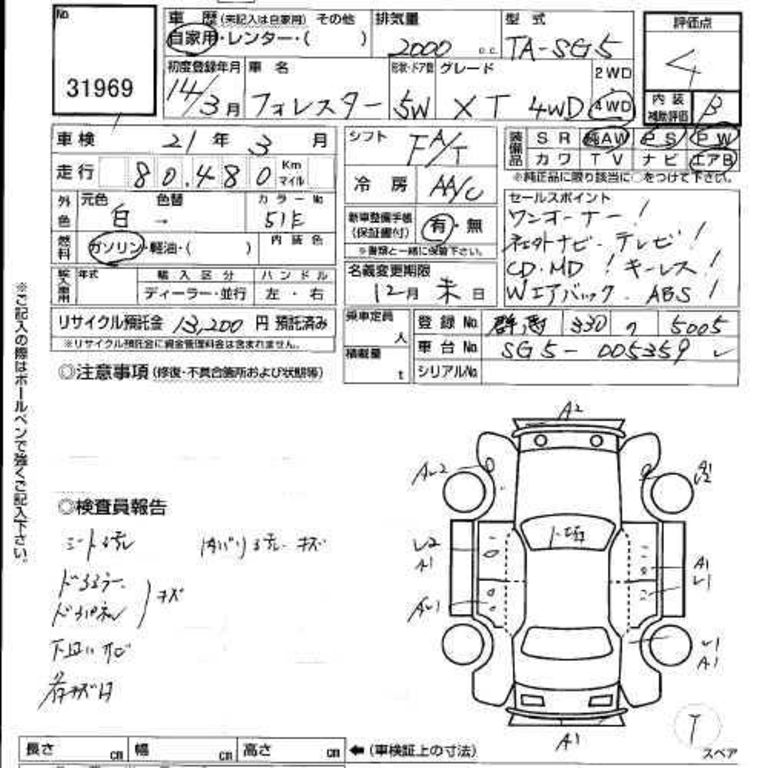 No 31969
車歴 (未記入は自家用) その他
自家用・レンター・( )
排気量 2000 c.c.
型式 TA-SG5
評価点 4
内装補助評価 B
初度登録年月 14/3月
車名 フォレスター
形状・ドア数 5W
グレード XT 4WD
2WD
4WD
車検 21年 3月
シフト FA/T
装備品 SR 純AW PS PW
カワ TV ナビ エアB
※純正品に限り該当に○をつけて下さい。
走行 80,480 Km マイル
冷房 AA/C
外色 元色 白 色替 → カラーNo 51E
燃料 ガソリン・軽油・( ) 内装色
新車整備手帳(保証書付) 有・無
※書類と一緒に保管下さい。
セールスポイント
ワンオーナー!
社外ナビ・テレビ!
CD・MD! キーレス!
Wエアバック、ABS!
輸入車用 年式 輸入区分 ハンドル
ディーラー・並行 左・右
名義変更期限
12月末日
リサイクル預託金 13,200円 預託済み
※リサイクル預託金に資金管理料金は含まれません。
乗車定員 人
積載量 t
登録No 330 5005
車台No SG5-005359
シリアルNo
◎注意事項(修復・不具合箇所および状態等)
※ご記入の際はボールペンで強くご記入下さい。
◎検査員報告
シートスレ 内バリスレ・キズ
キズ
A2
A1
A1
A1
A1
スペア
長さ cm 幅 cm 高さ cm ←(車検証上の寸法)